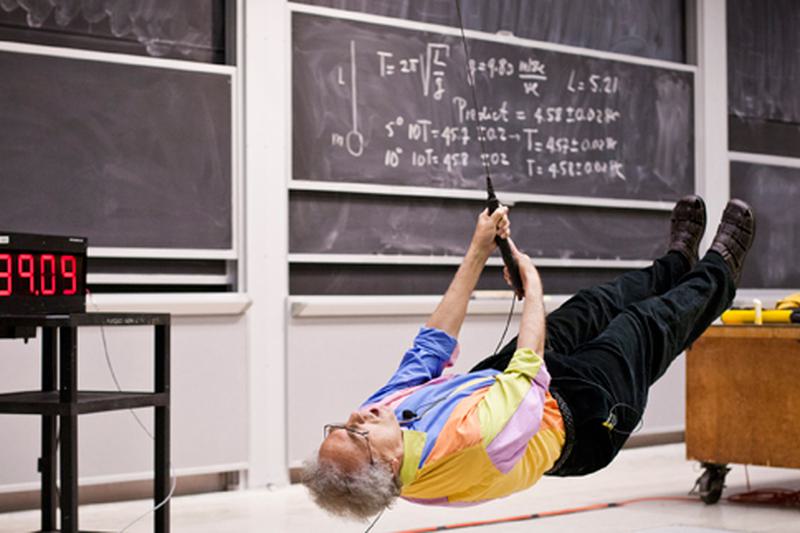 T=2π√L/g g=9.80 m/sec/sec L=5.21
L
Predict = 4.58±0.02 sec
5° 10T=45.7 ±0.2→T=4.57±0.02 sec
m
10° 10T=45.8 ±02 T=4.58±0.02 sec
39.09